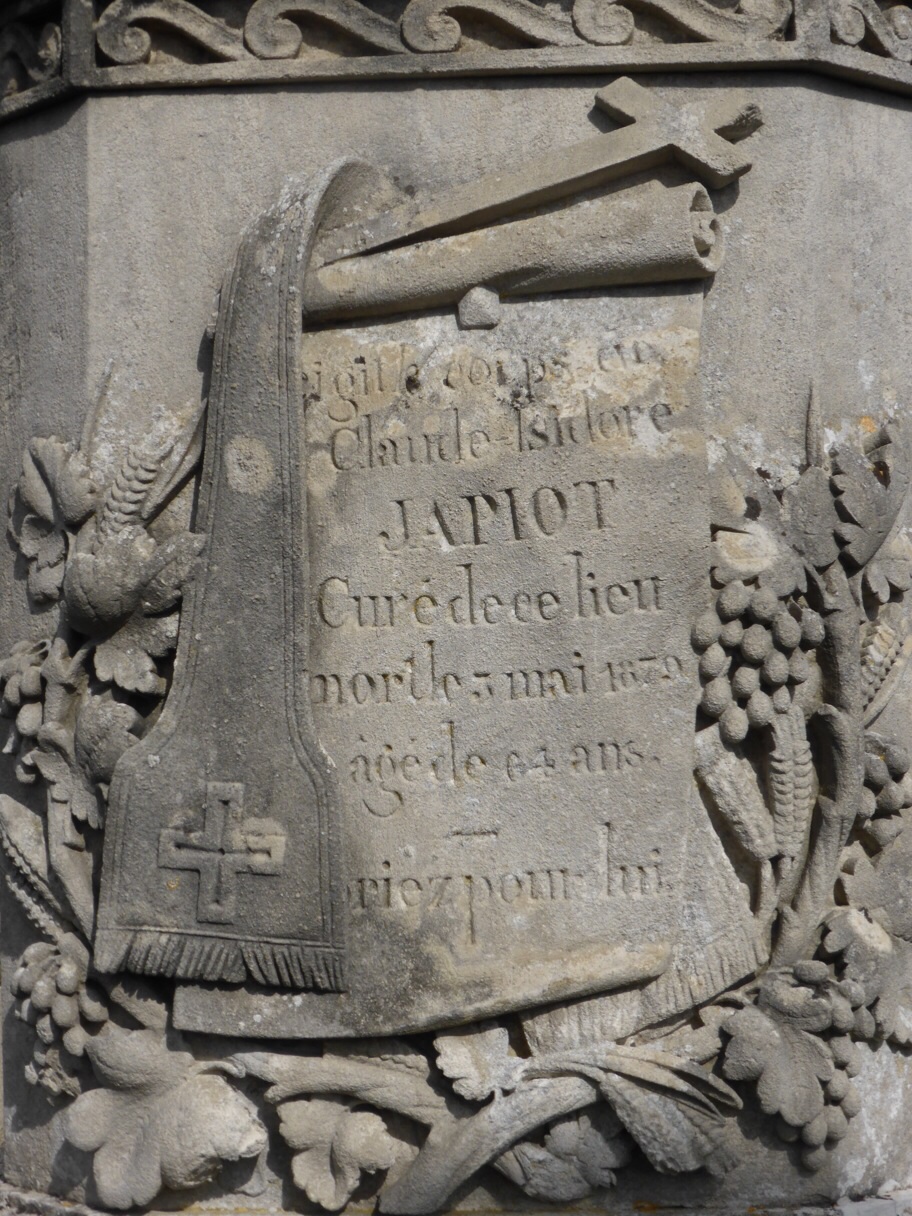 i gît le corps de
Claude-Isidore
JAPIOT
Curé de ce lieu
mort le 3 mai 1879
âgé de 64 ans.
priez pour lui.